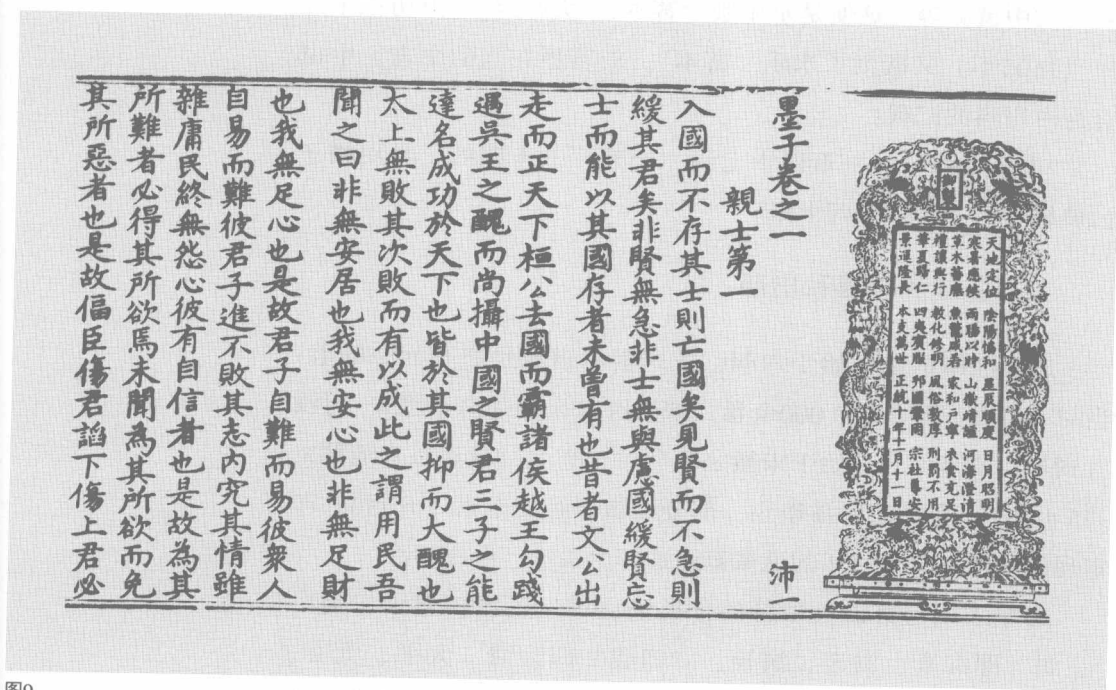 御製
天地定位 陰陽協和 星辰順度 日月昭明
寒暑應候 雨暘以時 山嶽靖謐 河海澄清
草木蕃廡 魚鱉咸若 家和戶寧 衣食充足
禮讓興行 教化修明 風俗敦厚 刑罰不用
華夏歸仁 四夷賓服 邦國鞏固 宗社尊安
景運隆長 本支萬世 正統十年十一月十一日
墨子卷之一 沛一
親士第一
入國而不存其士則亡國矣見賢而不急則
緩其君矣非賢無急非士無與慮國緩賢忘
士而能以其國存者未曾有也昔者文公出
走而正天下桓公去國而霸諸侯越王勾踐
遇吳王之醜而尚攝中國之賢君三子之能
達名成功於天下也皆於其國抑而大醜也
太上無敗其次敗而有以成此之謂用民吾
聞之曰非無安居也我無安心也非無足財
也我無足心也是故君子自難而易彼衆人
自易而難彼君子進不敗其志內究其情雖
雜庸民終無怨心彼有自信者也是故為其
所難者必得其所欲焉未聞為其所欲而免
其所惡者也是故偪臣傷君諂下傷上君必
图9